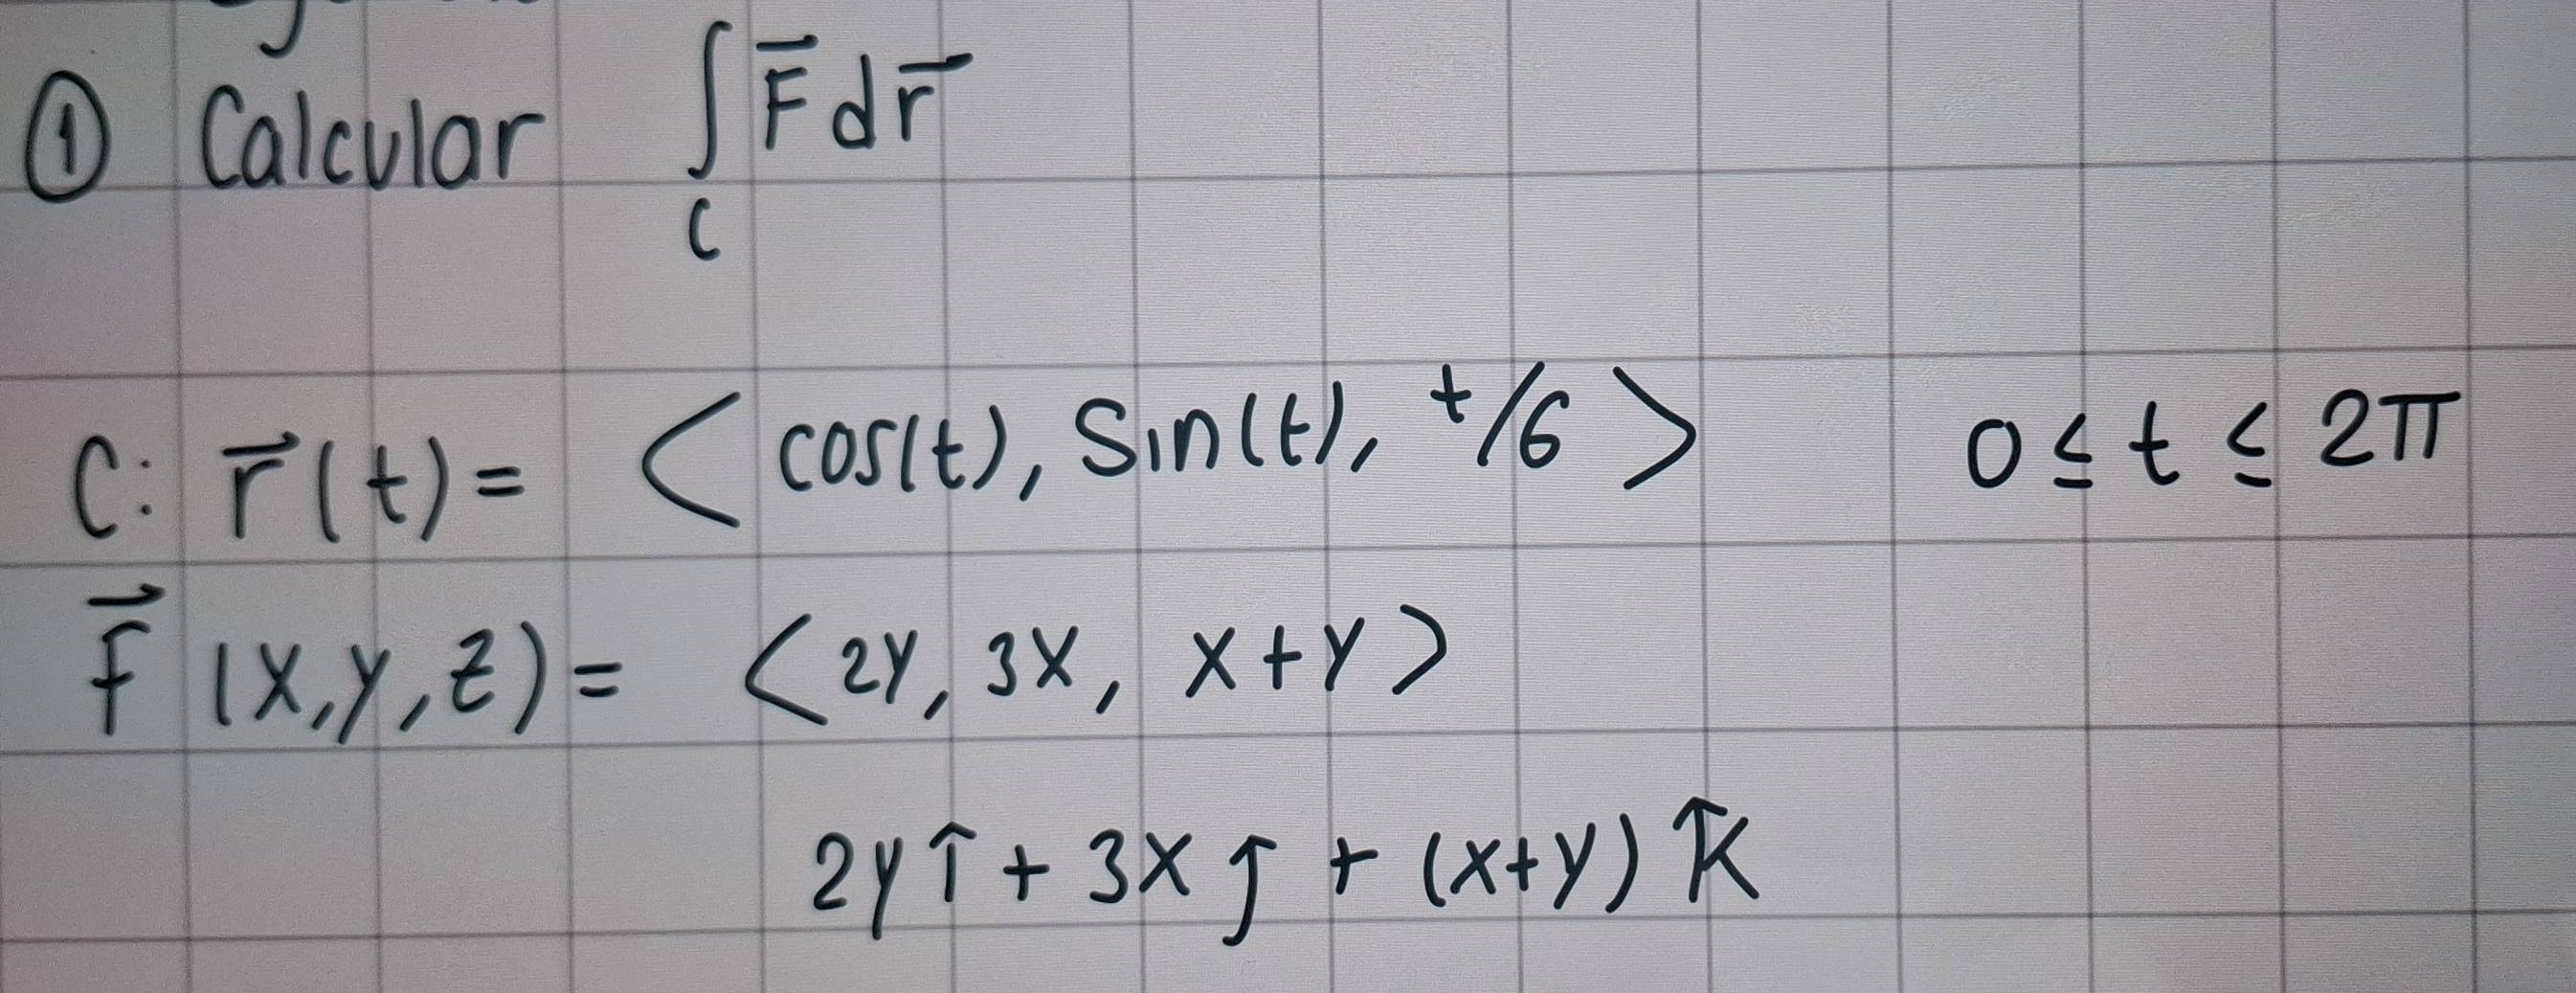 ① Calcular ∫_C F⃗ dr⃗
C: r⃗(t) = < cos(t), Sin(t), t/6 > 0 ≤ t ≤ 2π
F⃗ (x,y,z) = < 2y, 3x, x+y >
2y î + 3x ĵ + (x+y) k̂